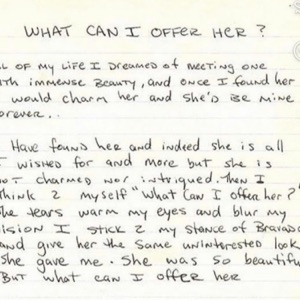 WHAT CAN I OFFER HER?
L OF MY LIFE I DREAMED OF MEETING ONE
TH IMMENSE BEAUTY, AND ONCE I FOUND HER
WOULD CHARM HER AND SHE'D BE MINE
OREVER..
HAVE FOUND HER AND INDEED SHE IS ALL
WISHED FOR AND MORE BUT SHE IS
OT CHARMED NOR INTRIGUED. THEN I
THINK 2 MYSELF "WHAT CAN I OFFER HER?"
HE TEARS WARM MY EYES AND BLUR MY
ISION I STICK 2 MY STANCE OF BRAVADO
AND GIVE HER THE SAME UNINTERESTED LOOK
SHE GAVE ME. SHE WAS SO BEAUTIFUL
BUT WHAT CAN I OFFER HER